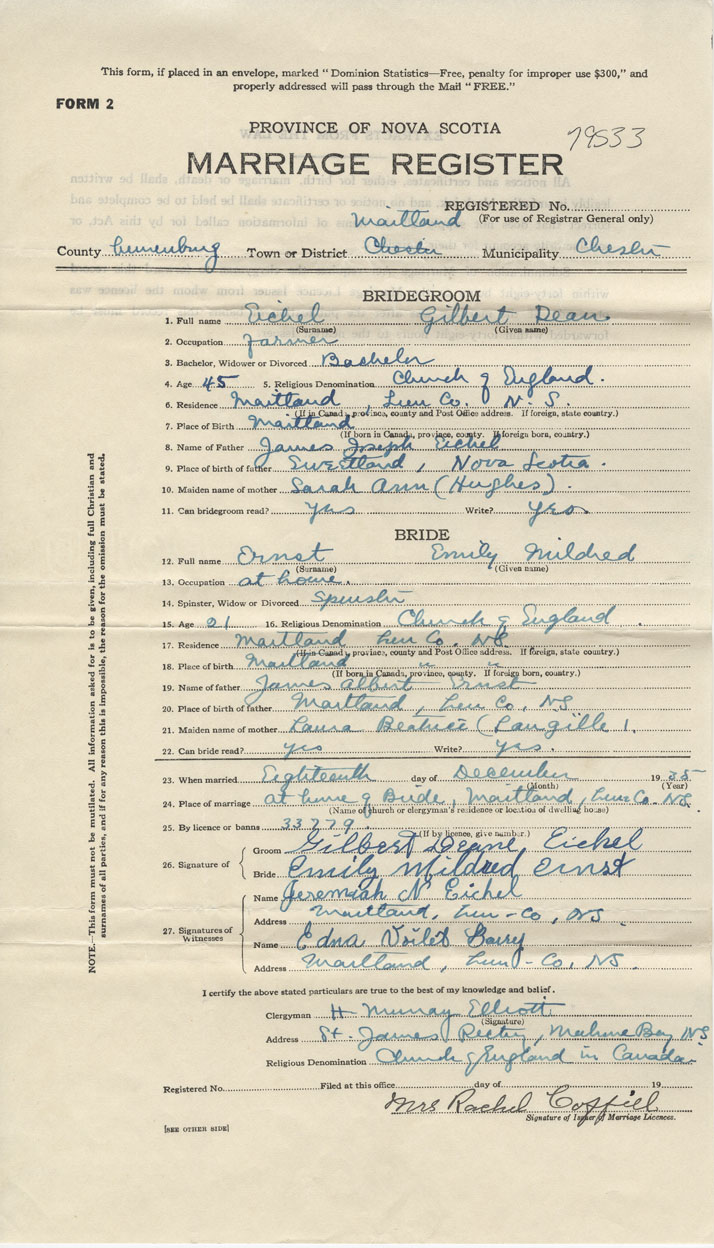 This form, if placed in an envelope, marked " Dominion Statistics—Free, penalty for improper use $300," and
properly addressed will pass through the Mail " FREE."
FORM 2
PROVINCE OF NOVA SCOTIA
79533
MARRIAGE REGISTER
REGISTERED No.
(For use of Registrar General only)
Maitland
County Lunenburg Town or District Chester Municipality Chester
BRIDEGROOM
1. Full name Eichel Gilbert Dean
(Surname) (Given name)
2. Occupation Farmer
3. Bachelor, Widower or Divorced Bachelor
4. Age 45 5. Religious Denomination Church of England.
6. Residence Maitland, Lun Co. N. S.
(If in Canada, province, county and Post Office address. If foreign, state country.)
7. Place of Birth Maitland
(If born in Canada, province, county. If foreign born, country.)
8. Name of Father James Joseph Eichel
9. Place of birth of father Sweetland, Nova Scotia.
10. Maiden name of mother Sarah Ann (Hughes).
11. Can bridegroom read? yes Write? yes
BRIDE
12. Full name Ernst Emily Mildred
(Surname) (Given name)
13. Occupation at home.
14. Spinster, Widow or Divorced Spinster
15. Age 21 16. Religious Denomination Church of England.
17. Residence Maitland Lun Co. NS.
(If in Canada, province, county and Post Office address. If foreign, state country.)
18. Place of birth Maitland " "
(If born in Canada, province, county. If foreign born, country.)
19. Name of father James Albert Ernst
20. Place of birth of father Maitland, Lun Co, NS
21. Maiden name of mother Laura Beatrice (Langille).
22. Can bride read? yes Write? yes.
23. When married Eighteenth day of December 1935
(Month) (Year)
24. Place of marriage at home of Bride, Maitland, Lun Co. NS.
(Name of church or clergyman's residence or location of dwelling house)
25. By licence or banns 33779
(If by licence, give number.)
26. Signature of
Groom Gilbert Deane, Eichel
Bride Emily Mildred Ernst
27. Signatures of Witnesses
Name Jeremiah N Eichel
Address Maitland, Lun-Co, NS.
Name Edna Voilet Barry
Address Maitland, Lun-Co, NS.
NOTE.—This form must not be mutilated. All information asked for is to be given, including full Christian and
surnames of all parties, and if for any reason this is impossible, the reason for the omission must be stated.
I certify the above stated particulars are true to the best of my knowledge and belief.
Clergyman H Murray Elliott
(Signature)
Address St. James Rectory, Mahone Bay NS
Religious Denomination Church of England in Canada
Registered No. Filed at this office day of 19
Mrs Rachel Coffill
Signature of Issuer of Marriage Licences.
[SEE OTHER SIDE]